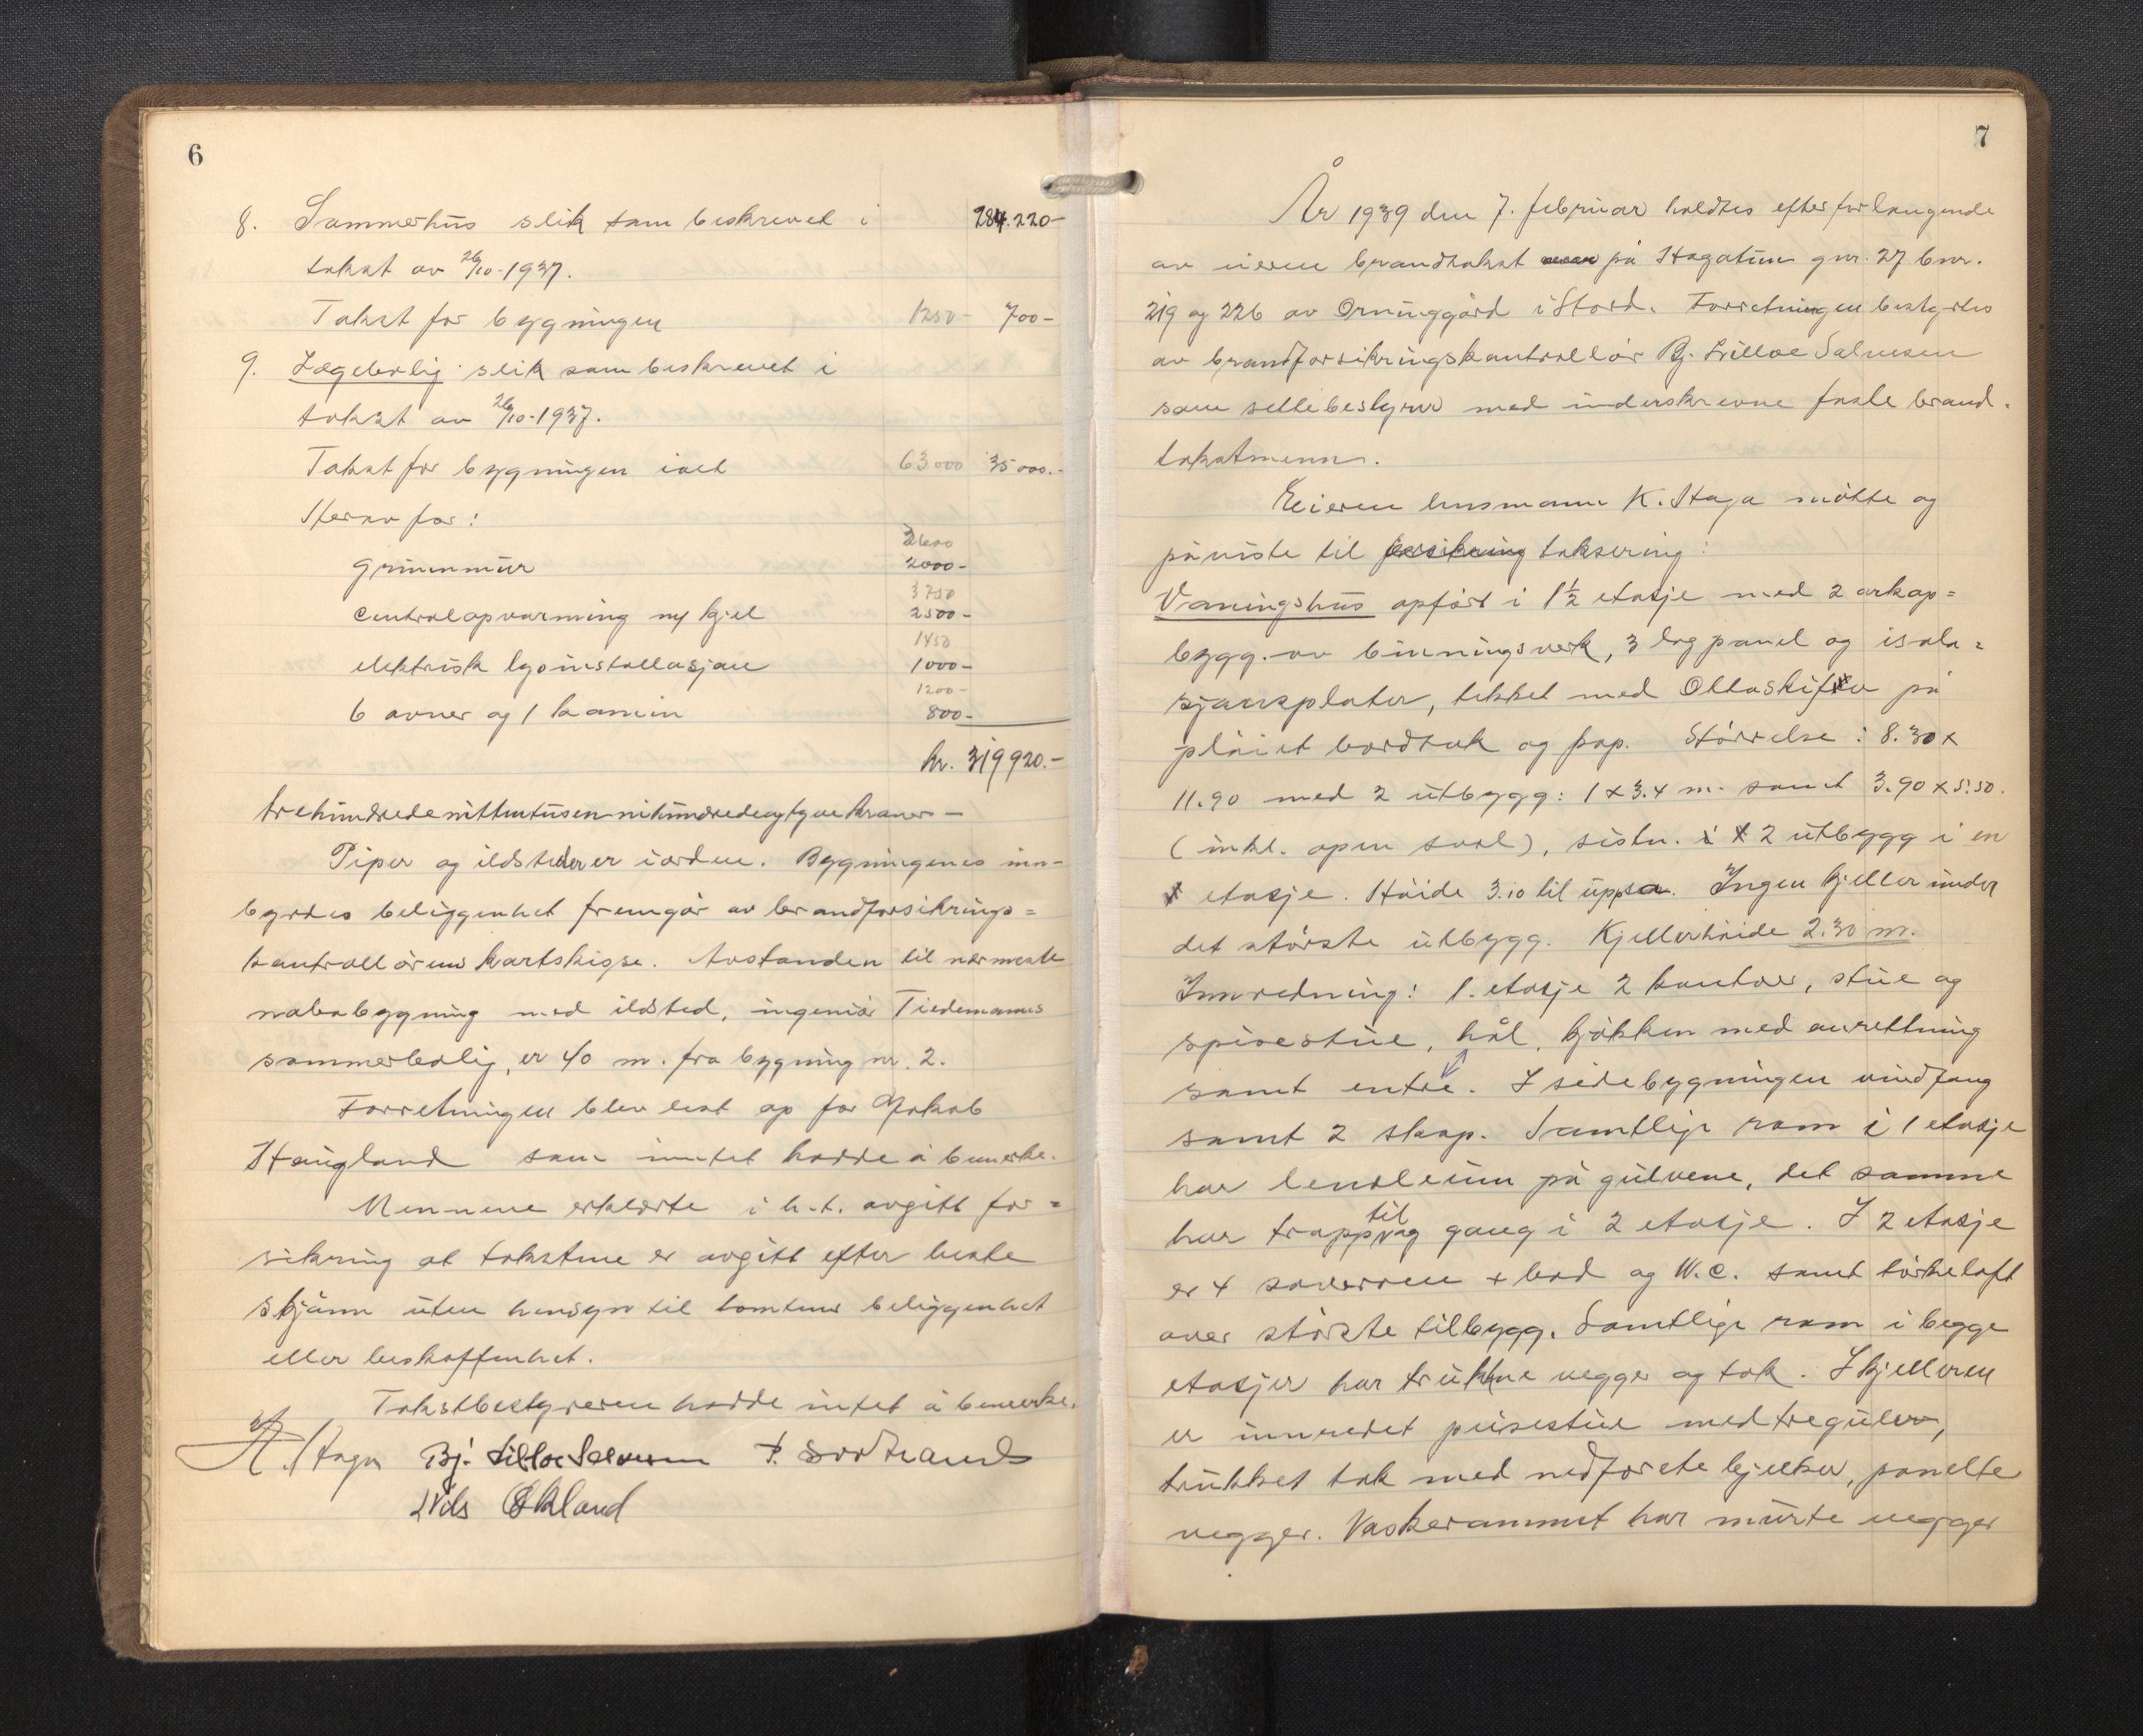 6
8. Sommerhus slik som beskrevet i 284.220-
takst av 26/10-1937.
Takst for bygningen 1250- 700-
9. Lægebolig slik som beskrevet i
takst av 26/10-1937.
Takst for bygningen ialt 63000 35000.-
Herav for:
3600
grunnmur 2000-
3750
centralopvarming ny kjel 2500-
1450
elektrisk lysinstallasjon 1000-
1200-
6 ovner og 1 kamin 800-
kr. 319920.-
trehundredenittentusennihundredeogtyve kroner -
Piper og ildsteder er iorden. Bygningenes inn-
byrdes beliggenhet fremgår av brandforsikrings=
kontrollørens kartskisse. Avstanden til nærmeste
nabobygning med ildsted, ingeniør Tiedemanns
sommerbolig, er 40 m. fra bygning nr. 2.
Forretningen blev lest op for Jakob
Haugland som intet hadde å bemerke.
Mennene erklærte i h.t. avgitt for=
sikring at takstene er avgitt efter beste
skjønn uten hensyn til tomtens beliggenhet
eller beskaffenhet.
Takstbestyreren hadde intet å bemerke.
K. Haga Bj. Lilloe Salvesen P. Sortland
Nils Økland
7
År 1939 den 7. februar holdtes efter forlangende
av eieren brandtakst på Hagatun gnr. 27 bnr.
219 og 226 av Orninggård i Stord. Forretningen bestyrtes
av brandforsikringskontrollør Bj. Lilloe Salvesen
som settebestyrer med underskrevne faste brand-
takstmenn.
Eieren lensmann K. Haga møtte og
påviste til forsikring taksering:
Våningshus opført i 1½ etasje med 2 arkop=
bygg. av binningsverk, 3 lag panel og isola=
sjonsplater, tekket med Ottaskifer på
pløiet bordtak og pap. Størrelse: 8.30 x
11.90 med 2 utbygg: 1 x 3.4 m. samt 3.90 x 5.50.
(inkl. open sval), sistn. 2 utbygg i en
etasje. Høide 3.10 til uppsa. Ingen kjeller under
det største utbygg. Kjellerhøide 2.30 m.
Innredning: 1. etasje 2 kontor, stue og
spisestue, hål, kjøkken med anrettning
samt entre. I sidebygningen vindfang
samt 2 skap. Samtlige rom i 1 etasje
har lenoleum på gulvene, det samme
til
har trapp og gang i 2 etasje. I 2 etasje
er 4 soverom + bad og W.C. samt tørkeloft
over største tilbygg. Samtlige rom i begge
etasjer har trukne vegger og tak. I kjelleren
er innredet peisestue med tregulv,
trukket tak med nedforete bjelker, panelte
vegger. Vaskerommet har murte vegger